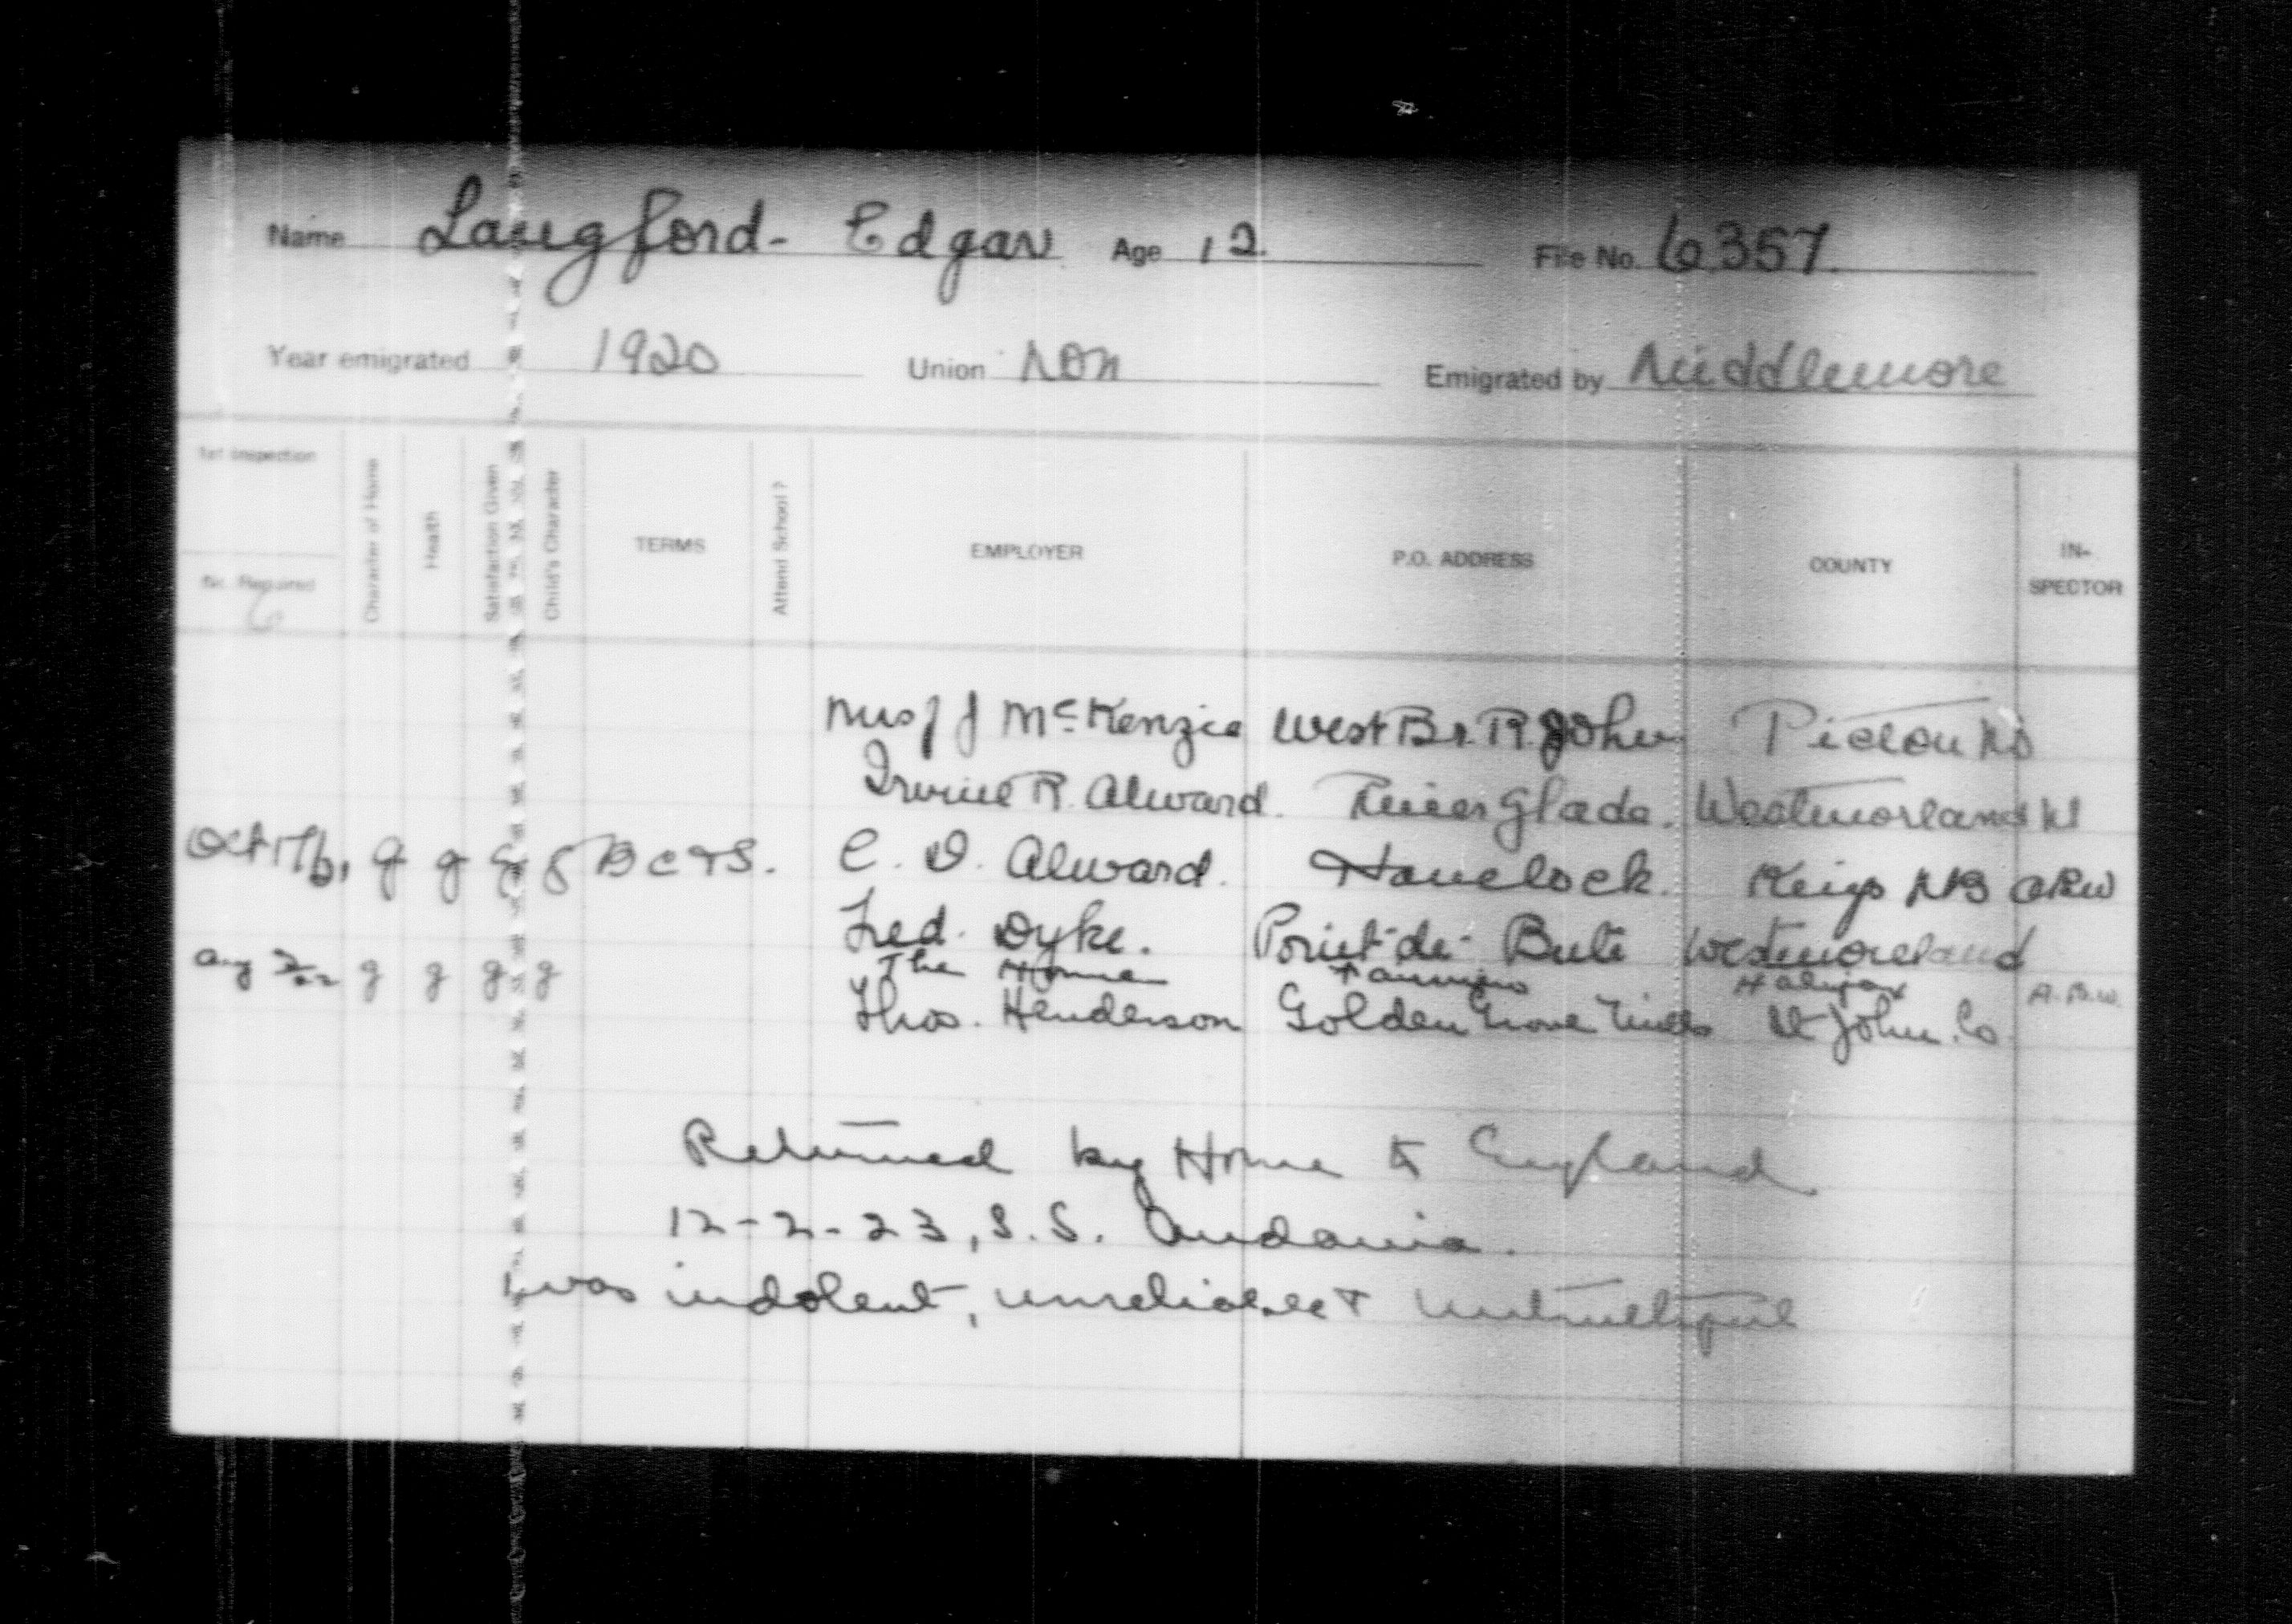 Name Langford - Edgar Age 12 File No. 6357
Year emigrated 1920 Union Non Emigrated by Middlemore
1st Inspection
No. Required
6
Character of Home
Health
Satisfaction Given
Child's Character
TERMS
Attend School?
EMPLOYER
P.O. ADDRESS
COUNTY
IN-
SPECTOR
Mrs J J McKenzie West Br. R. John Pictou NS
Irvine R. Alward. River Glade. Westmorland
Oct 17/21 g g g g B C & S. C. D. Alward. Havelock. Kings NB
Fred. Dyke. Point-de-Bute Westmoreland
Aug 2/22 g g g g The Home Fairview Halifax A.B.W.
Thos. Henderson Golden Grove Mills St John. Co
Returned by Home to England
12-2-23, S.S. Andania.
was indolent, unreliable & untruthful